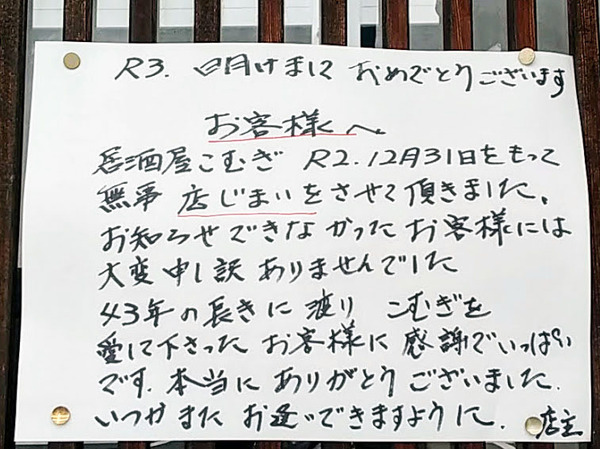 R3. 明けまして おめでとうございます
お客様へ
居酒屋こむぎ R2.12月31日をもって
無事 店じまいをさせて頂きました、
お知らせできなかったお客様には
大変申し訳ありませんでした
43年の長きに渡り こむぎを
愛して下さったお客様に感謝でいっぱい
です.本当にありがとうございました.
いつかまたお逢いできますように.
店主